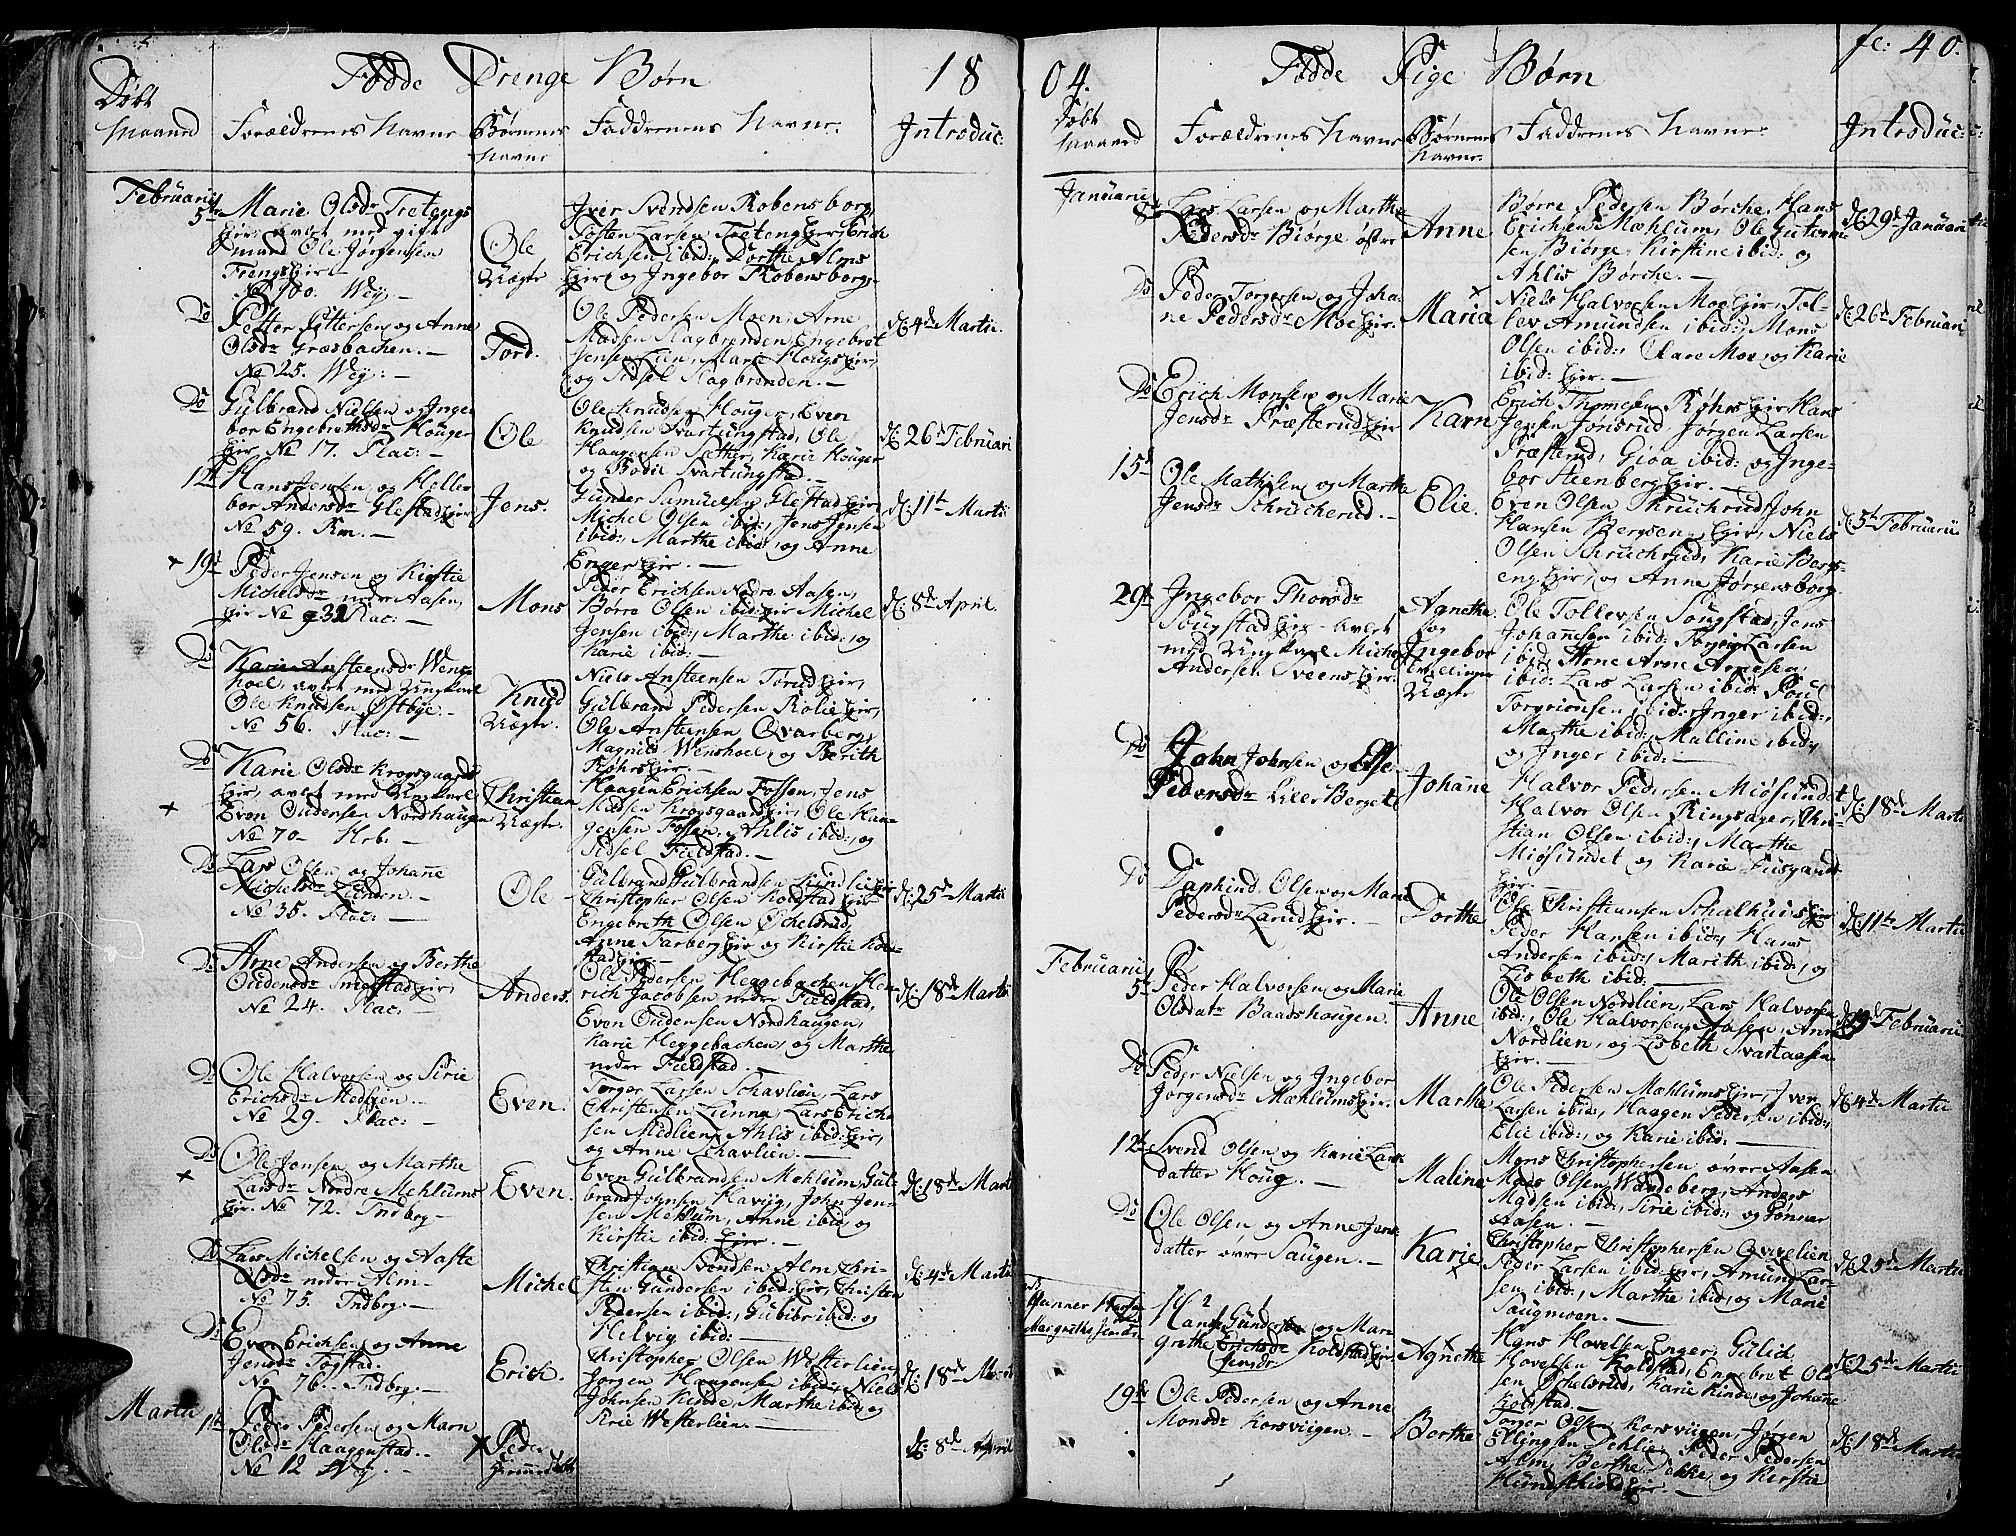 Fødde Drenge Børn 18
Døbt
Maaned
Forældrenes Navne
Børnenes
Navne
Faddrenes Navne.
Introduc:
Februarii
5te Marie Olsdr Tretengs
Eir, avlet med gift
mand Ole Jørgensen
Trengs Eir.
No 100. Wej.
Ole
Uægte
Iver Svendsen Robensborg,
Tosten Larsen Tretengeir, Erich
Erichsen ibid:, Dorthe Alms
Eir, og Ingebor Robensborg.
Do Petter Pettersen og Anne
Olsdr Græsbachen.
No 25. Wej:
Tord.
Ole Pedersen Moen, Arne
Madsen Kagbrenden, Engebret
Jensen Lien, Marie Hougs Eir,
og Sidsel Kagbrenden.
d: 4de Martii.
Do Gulbrand Nielsen og Inge
bor Engebrethsdr Houger
Eir No 17. Plac:
Ole
Ole Knudsen Houger, Even
Knudsen Svartungstad, Ole
Haagensen Sæther, Karie Houger
og Bodil Svartungstad.
d: 26de Februarii
12te Hans Jensen og Helle
bor Andersdr Glestad Eir
No 59. Rm.
Jens.
Gunder Samuelsen Glestad Eir,
Michel Olsen ibid:, Jens Jensen
ibid:, Marthe ibid:, og Anne
Enger Eir.
d: 11te Martii
19de Peder Jensen og Kirstie
Michelsdr nedre Aasen,
Eir No 32 Plac:
Mons
Peder Erichsen Nedre Aasen,
Børre Olsen ibid: Eir Michel
Jensen ibid:, Marthe ibid:, og
Karie ibid:
d: 8de April.
Do Karie Ansteensdr Wens
hoel, avlet med Ungkarl
Ole Knudsen Østbye.
No 56. Plac:
Knud
Uægte.
Niels Ansteensen Torud Eir,
Gulbrand Pedersen Rolie Eir,
Ole Ansteensen Qvarberg,
Magnild Wenshoel, og Berith
Røhrs Eir.
Do Karie Olsdr Krogsgaards
Eir, avlet med Ungkarl
Even Oudensen Nordhaugen
No 70. Hrb:
Christian
Uægte.
Haagen Erichsen Fossen, Jens
Madsen Krogsgaard Eir, Ole Haa-
gensen Fossen, Ahlis ibid:, og
Sidsel Fieldstad.
Do Lars Olsen og Johanne
Michelsdr Linden.
No 35. Plac:
Ole
Gulbrand Gulbrandsen Kindlie Eir
Christopher Olsen Kolstad Eir
Engebreth Olsen Ochelsrud,
Anne Farberg Eir og Kirstie Kol-
stad Eir.
d: 25de Martii
Do Arne Andersen og Berthe
Oudensdr Smestad Eir,
No 24. Plac:
Anders.
Ole Pedersen Heggebachen, Hen
rich Jacobsen nedre Fieldstad,
Even Oudensen Nordhaugen,
Karie Heggebachen, og Marthe
nedre Fieldstad.
d: 18de Martii
Do Ole Halvorsen og Sirie
Erichsdr Medlien.
No 29. Plac:
Even.
Torger Larsen Schavlien, Lars
Christensen Linna, Lars Erich-
sen Medlien, Ahlis ibid: Eir,
og Anne Schavlien.
Do Ole Jonsen og Marthe
Larsdr Nordre Mehlums
Eir. No 72. Indbrg.
Even.
Even Gulbrandsen Mehlum, Gul-
brand Johnsen Havig, John Jen-
sen Mehlum, Anne ibid: og
Kirstie ibid: Eir.
d: 18de Martii
Do Lars Michelsen og Aaste
Olsdr nedre Alm.
No 75. Indbrg.
Michel
Christian Svendsen Alm, Chri-
sten Gundersen ibid: Eir, Christen
Pedersen ibid:, Gubibr ibid: og
Helvig ibid:
d: 4de Martii
Do Even Erichsen og Anne
Jensdr Togstad.
No 76. Indbrg.
Erich.
Christopher Olsen Westerlien
Jørgen Haagensen ibid:, Niels
Johnsen Kinde, Marthe ibid: og
Sirie Westerlien.
d: 18de Martii
Martii
1te Peder Pedersen og Marn
Olsdr Haagenstad.
No 12 Wej.
Peder
d: 8de April
fc: 40.
04. Fødde Pige Børn
Døbt
Maaned
Forældrenes Navne
Børnenes
Navne.
Faddrenes Navne.
Introduc:
Januarii
8de Lars Larsen og Marthe
Pedersdr Biørge østre
Anne
Børre Pedersen Børche, Hans
Erichsen Mæhlum, Ole Guttorm
sen Biørge, Kirstine ibid: og
Ahlis Børche.
d: 29de Januarii
Do Peder Torgersen og Joha-
ne Pedersdr Moe Eir.
Maria
Niels Halvorsen Moe Eir, Tol-
lev Amundsen ibid:, Mons
Olsen ibid:, Clare Moe, og Karie
ibid: Eir.
d: 26de Februarii
Do Erich Monsen og Marie
Jensdr Præsterud Eir
Karn
Erich Thomesen Røhrs Eir Hans
Jensen Jonsrud, Jørgen Larsen
Præsterud, Gioa ibid: og Inge-
bor Steenberg Eir.
15de Ole Mathisen og Marthe
Jensdr Schrucherud.
Elie.
Even Olsen Skruchrud, John
Hansen Bergseng Eir, Niels
Olsen Schruchrud, Karie Berg-
seng Eir, og Anne Jørgensborg
d: 5te Februarii
29de Ingebor Thorsdr
Sougstad Eir avlet
med Ungkarl Michel
Andersen Sveens Eir.
Agnethe
og
Ingebor
Tvillinger
Uægte
Ole Tollevsen Sougstad, Jens
Johannesen ibid: Torgier Larsen
ibid:, Arne Arnesen,
ibid: Lars Larsen ibid: Poul
Torgriimsen ibid: Inger ibid:
Marthe ibid:, Malline ibid:
og Inger ibid:
Do John Johnsen og Else
Pedersdr Lille Berget
Johanne
Halvor Pedersen Miøsundet
Halvor Olsen Ringsager, Chri-
stian Olsen ibid:, Marthe
Miøsundet og Karie Fusgaards
Eir.
d: 18de Martii
Do Daphind Olsen og Marie
Pedersdr Larud Eir.
Dorthe
Ole Christiansen Schulhuus Eir
Peder Hansen ibid:, Hans
Andersen ibid:, Marith ibid:, og
Lisbeth ibid:
d: 11te Martii
Februarii
5te Peder Halvorsen og Marie
Olsdatr Baadshougen.
Anne
Ole Olsen Nordlien, Lars Halvorsen
ibid:, Ole Halvorsen Aasen, Anne
Nordlien, og Lisbeth Svartaasen
Eir.
d: 19de Februarii
Do Peder Nielsen og Ingebor
Jørgensdr Mæhlums Eir.
Marthe
Ole Pedersen Mæhlums Eir, Iven
Larsen ibid:, Haagen Pedersen ibid:,
Elie ibid:, og Karie ibid:
d: 4de Martii
12te Svend Olsen og Karie Lars
datter Houg.
Maline
Mons Christophersen øvre Aasen
Mads Olsen Wandeberg, Anders
Madsen ibid:, Sirie ibid:, og Gønner
Aasen.
Do Ole Olsen og Anne Jens
datter øvre Saugen.
Karie
Christopher Christophersen Qvivelien
Peder Larsen ibid: Eir, Amund Lar-
sen ibid:, Marthe ibid:, og Marie
Saugmoen.
d: 25de Martii
Gunner Hansen
Margrethe Jensdr
Hans Gundersen og Mar-
grethe Erichsdr Kolstad Eir
Jensdr
Agnethe
Hans Hovelsen Enger, Gulich
Hovelsen Kolstad, Engebret Ol-
sen Ochelsrud, Karie Kinde, og Johanne
Kolstad.
d: 25de Martii
19de Ole Pedersen og Anne
Monsdr Korsviigen.
Berthe
Torger Olsen Korsviigen, Jørgen
Ellingsen Dehlie, Peder Pedersen
Alm, Berthe Dekke, og Kirstie
Hundskind Eir.
d: 18de Martii